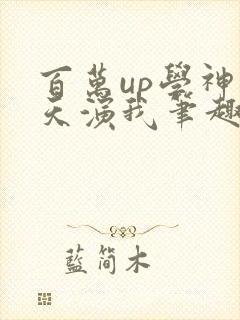 百萬up學神
天演我筆趣
藍简木